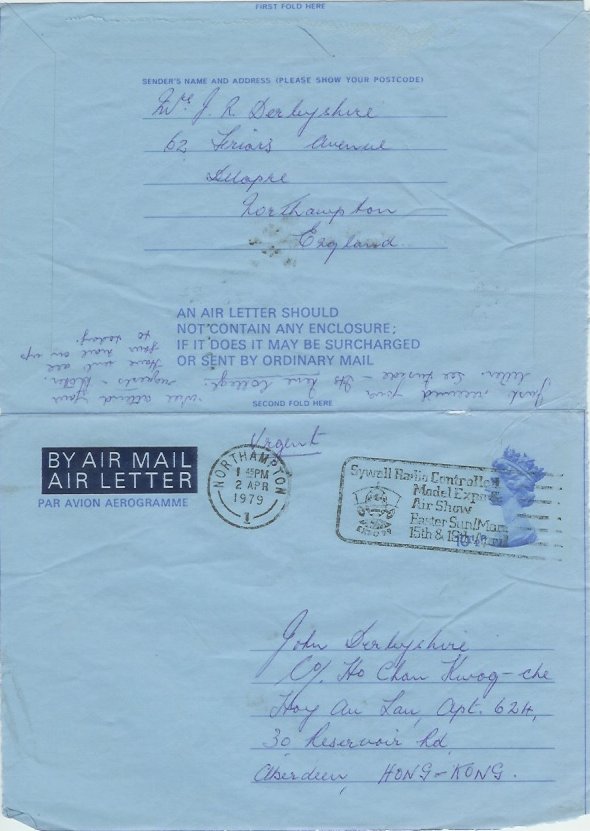 FIRST FOLD HERE
SENDER'S NAME AND ADDRESS (PLEASE SHOW YOUR POSTCODE)
Mrs J. R. Derbyshire
62 Friars Avenue
Delapre
Northampton
England.
AN AIR LETTER SHOULD
NOT CONTAIN ANY ENCLOSURE;
IF IT DOES IT MAY BE SURCHARGED
OR SENT BY ORDINARY MAIL
Just received your
letter. See inside
College.
will attend your
requests - Mother.
Have sent all
your mail on up
to today.
SECOND FOLD HERE
Urgent
BY AIR MAIL
AIR LETTER
PAR AVION AEROGRAMME
NORTHAMPTON
1 45PM
2 APR
1979
1
Sywell Radio Controlled
Model Expo &
Air Show
Easter Sun/Mon
15th & 16th April
John Derbyshire
C/o Ho Chan Kwog-che
Hoy Au Lau, Apt. 624,
30 Reservoir Rd,
Aberdeen, HONG-KONG.